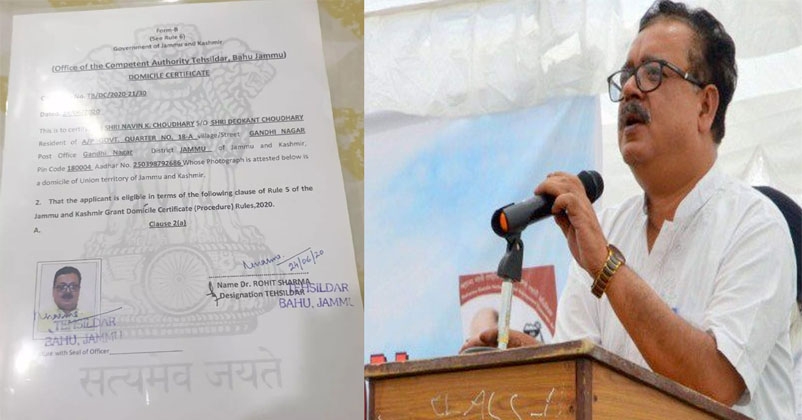 Form-B
(See Rule 6)
Government of Jammu and Kashmir
(Office of the Competent Authority Tehsildar, Bahu Jammu)
DOMICILE CERTIFICATE
No. TB/DC/2020-21/30
Dated
This is to certify SHRI NAVIN K. CHOUDHARY S/O SHRI DEOKANT CHOUDHARY
Resident of A/P GOVT. QUARTER NO. 18-A village/Street GANDHI NAGAR
Post Office Gandhi Nagar District JAMMU of Jammu and Kashmir,
Pin Code 180004 Aadhar No. 250398792686 Whose Photograph is attested below is
a domicile of Union territory of Jammu and Kashmir,
2. That the applicant is eligible in terms of the following clause of Rule 5 of the
Jammu and Kashmir Grant Domicile Certificate (Procedure) Rules,2020.
A.
Clause 2(a)
24/06/20
Name Dr. ROHIT SHARMA
Designation TEHSILDAR
TEHSILDAR
BAHU, JAMMU
TEHSILDAR
BAHU, JAMMU
Date with Seal of Officer
सत्यमेव जयते
CLASS